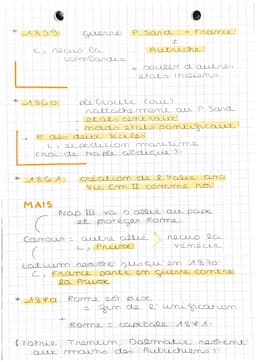 * 1859: guerre: P. Sard + France
+
Autriche
↳ recup la
Lombardie
+ soulèv d'autres
etats italiens
* 1860 plébiscite (oui)
rattachement au P. Sard
etats centraux
mais etats pontificaux
+ R des deux Siciles
↳ expedition maritime
(roi de Naple abdique)
* 1861: création de l'Italie avec
Vic Em II comme roi
MAIS
Nap III va s'allié au pape
et protéger Rome.
Cavour: autre allié
↳ Prusse
recup la
Vénécie
Latium resiste jusqu'en 1870
↳ France parte en guerre contre
la Prusse
* 1870 Rome est prise
= fin de l'unification
+ Rome = capitale 1871.
(Istrie Trentin, Dalmatie restent
aux mains des Autrichiens)